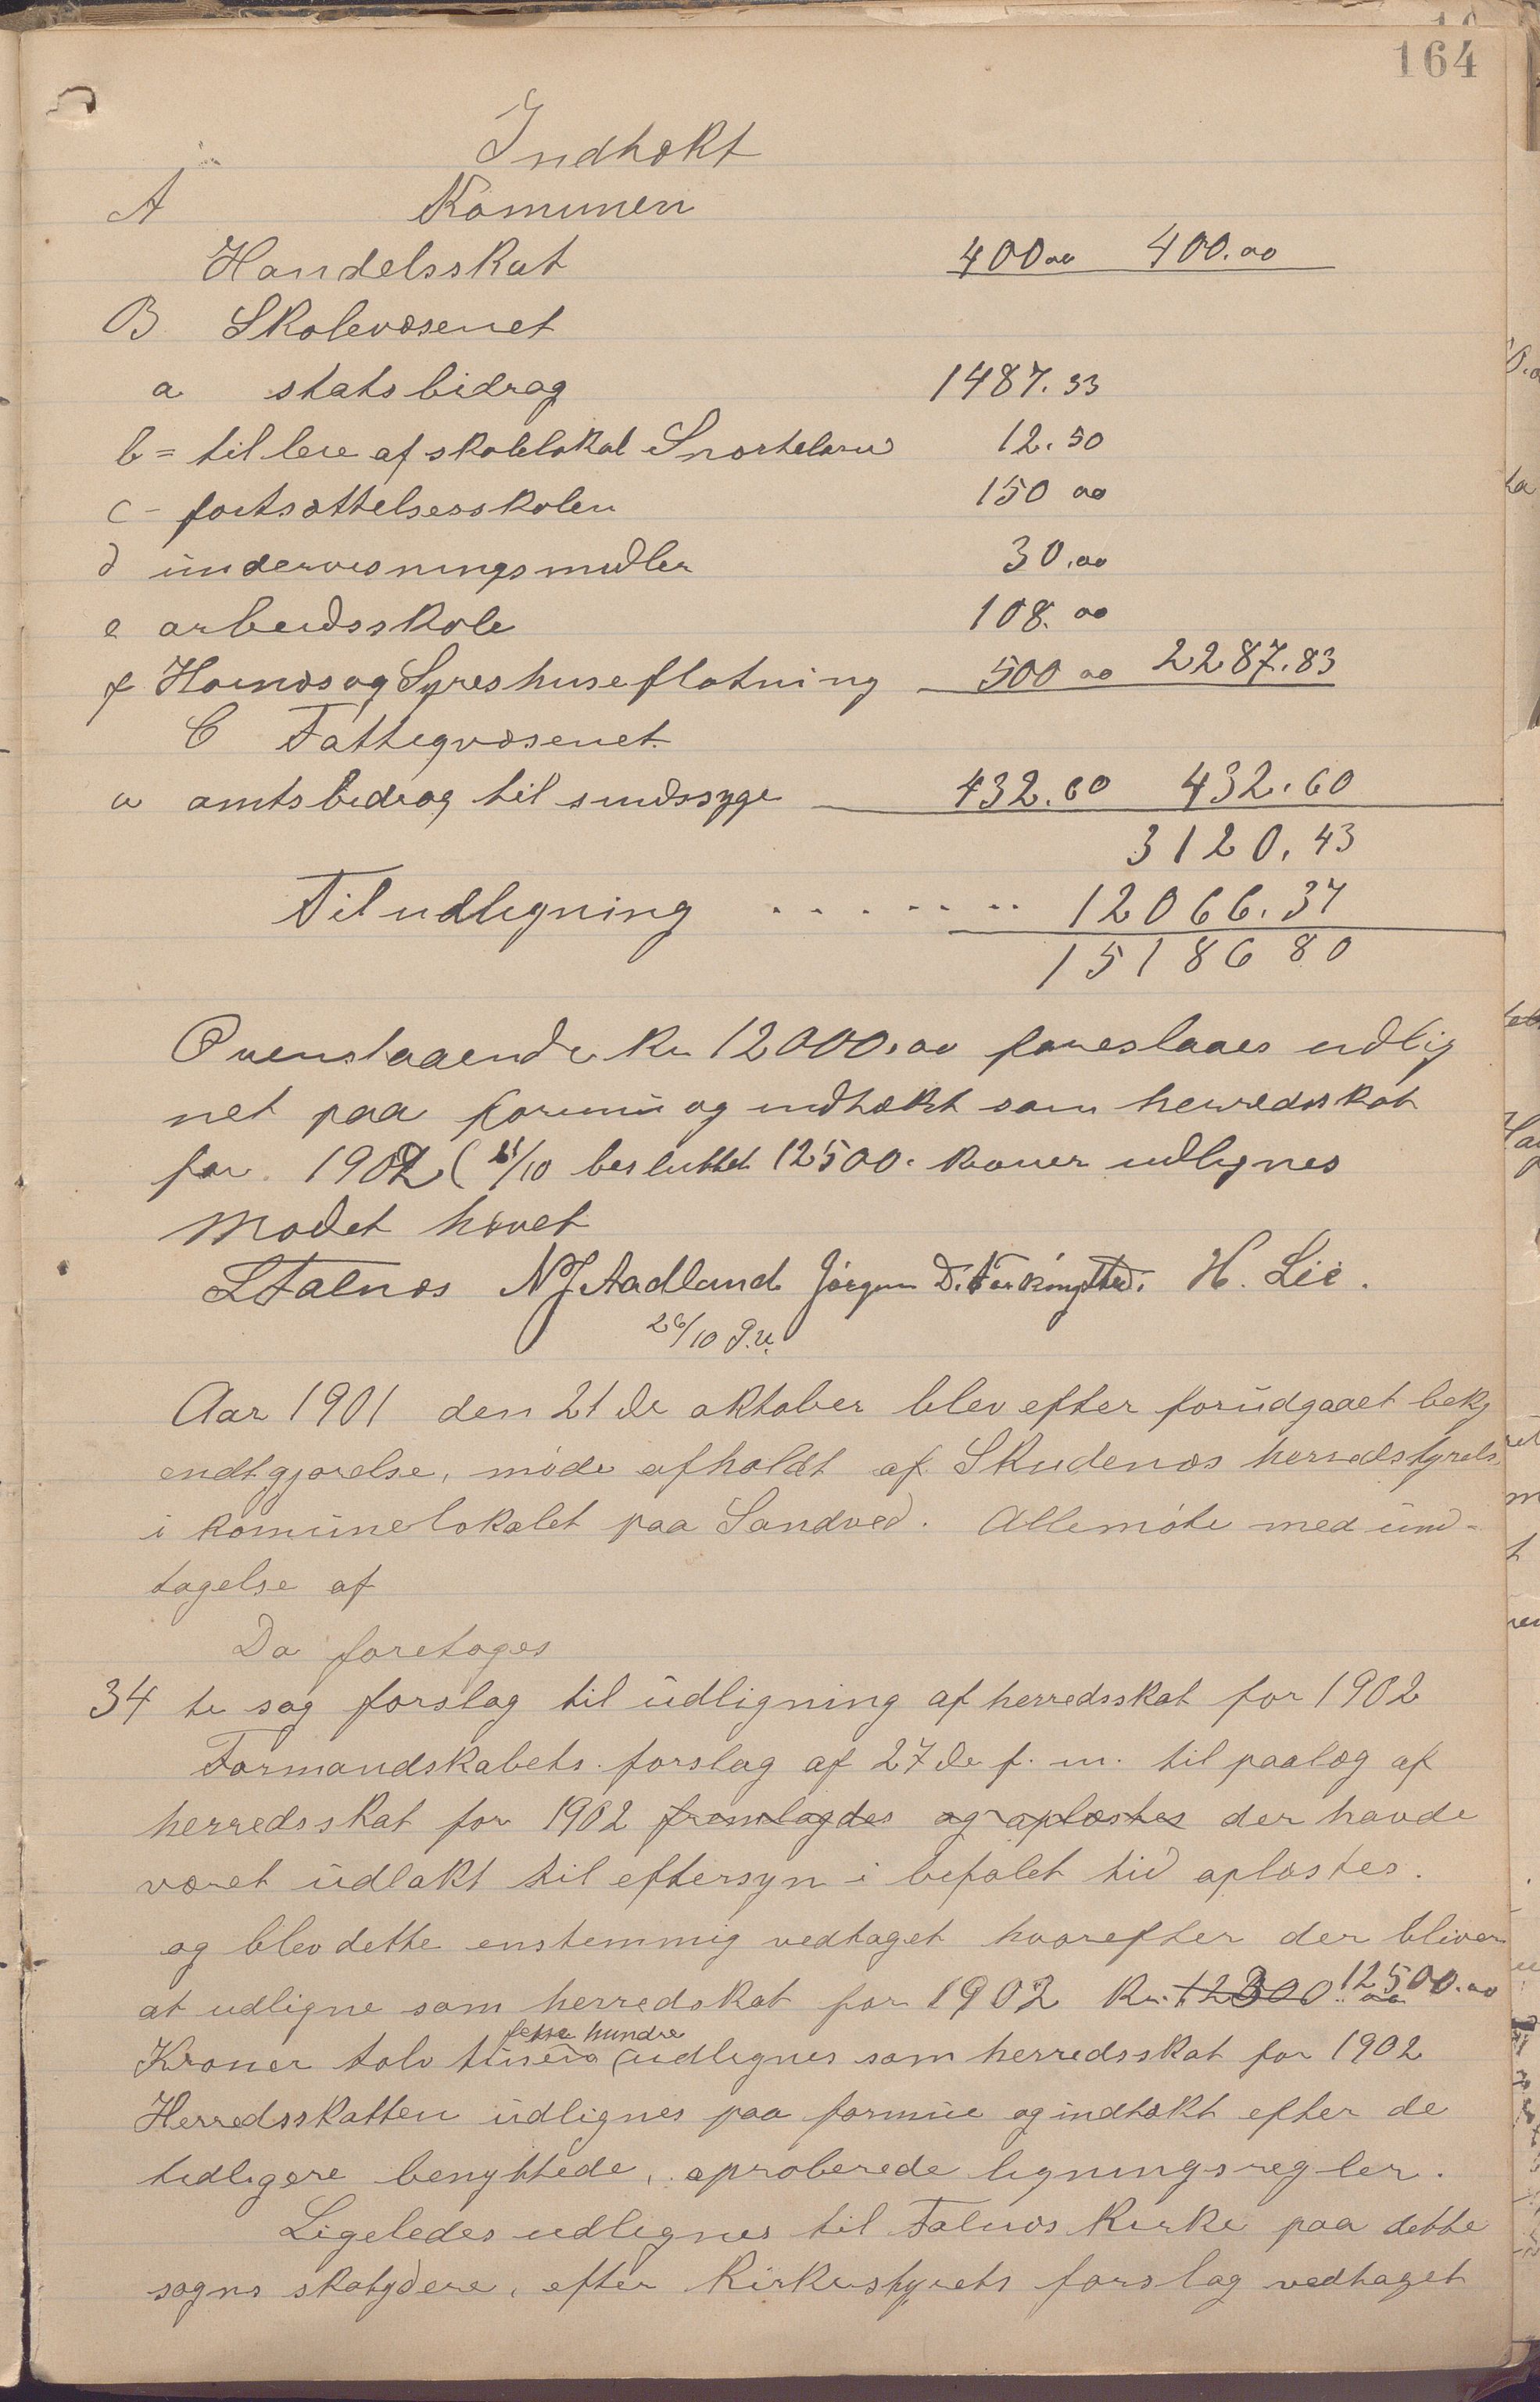 164
Indtækt
A Komunen
Handelsskat 400 00 400.00
B Skolevæsenet
a statsbidrag 1487.33
b = til leie af skolelokal Snørteland 12.50
c - fortsættelsesskolen 150 00
d undervisningsmidler 30.00
e arbeidsskole 108.00
f Hovnæs og Syreshuseflotning 500 00 2287.83
C Fattigvæsenet
a amtsbidrag til sindssyge 432.60 432.60
3120.43
Til udligning . . . . . . . 12066.37
15186 80
Ovenstaaende Kr 12000.00 foreslaaes udlig
net paa formue og indtækt som herredsskat
for 1902 (21/10 besluttet 12500. kroner udlignes
Mødet hævet
L Falnæs N J Aadland Jørgen D. Ferkingstad. H. Lie.
26/10 P.V.
Aar 1901 den 21de oktober blev efter forudgaaet bekj
endtgjørelse, møde afholdt af Skudenæs herredsstyrels
i komunelokalet paa Sandved. Alle møtte med und-
tagelse af
Da foretoges
34 te sag forslag til udligning af herredsskat for 1902
Formandskabets forslag af 27de f. m. til paalæg af
herredsskat for 1902 fremlagdes og oplæstes der havde
været udlakt til eftersyn i befalet tid oplæstes.
og blev dette enstemmig vedtaget hvorefter der bliver
at udligne som herredskat for 1902 Kr. 12000 00 12500.00
femhundre
Kroner tolv tusend (udlignes som herredsskat for 1902
Herredsskatten udlignes paa formue og indtækt efter de
tidligere benyttede, aproberede ligningsregler.
Ligeledes udlignes til Falnæs Kirke paa dette
sogns skatydere, efter Kirkestyrets forslag vedtaget